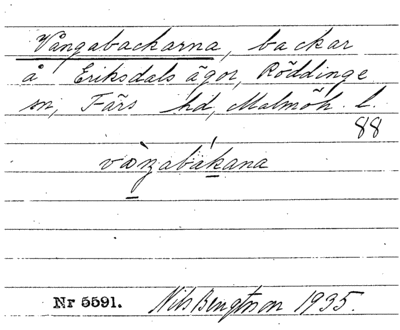 Vångabackarna, backar
å Eriksdals ägor, Röddinge
sn, Färs hd, Malmöh. l.
88
vàŋabákana
Nr 5591. Nils Bengtsson 1935.